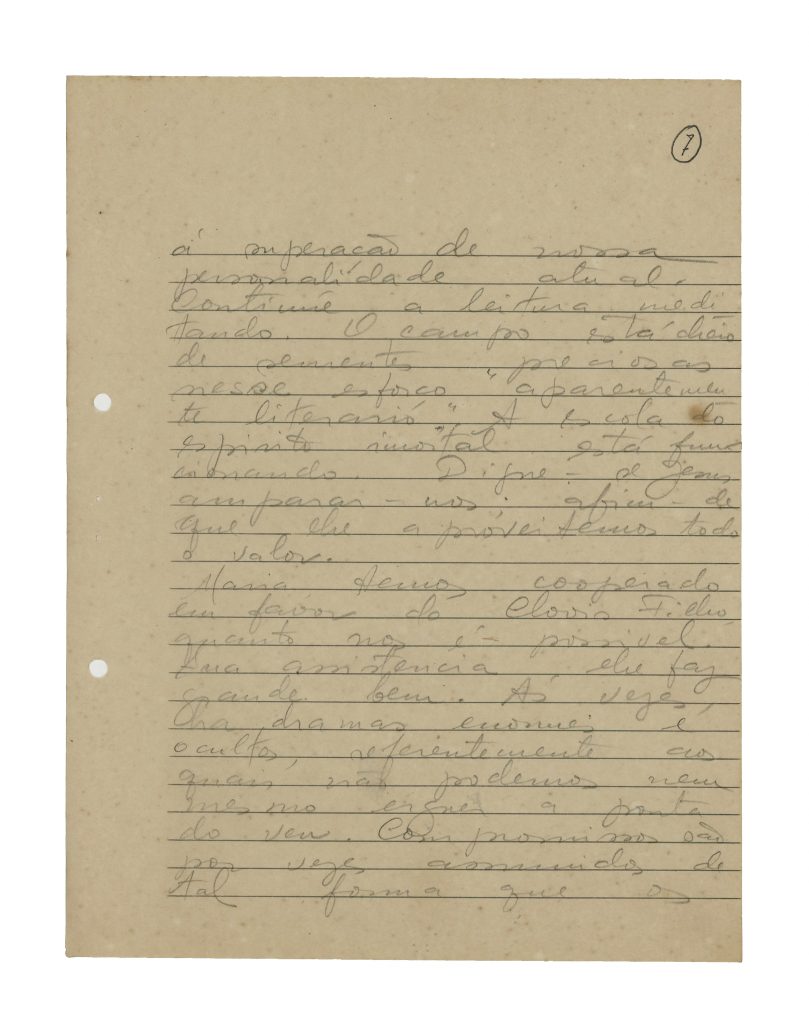 7
á superação de nossa
personalidade atual.
Continue a leitura medi
tando. O campo está cheio
de sementes preciosas
nesse esforço "aparentemen
te literario". A escola do
espirito imortal está func
cionando. Digne-se Jesus
amparar-nos, afim-de
que lhe aproveitemos todo
o valor.
Maria temos cooperado
em favor do Clovis Filho,
quanto nos é possivel.
Tua assistencia lhe faz
grande bem. Ás vezes,
ha dramas enormes é
ocultos, referentemente aos
quais não podemos nem
mesmo erguer a ponta
do veu. Compromissos são
por vezes assumidos de
tal forma que os